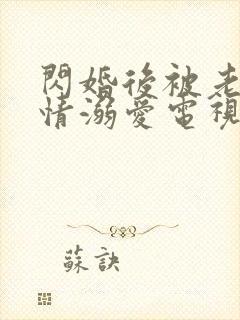 閃婚後被老
情溺愛電視
蘇訣